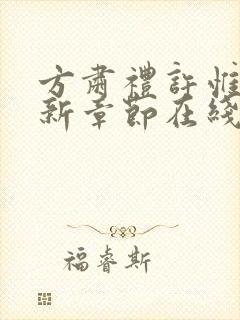 方肅禮許惟
新章節在綫
福睿斯